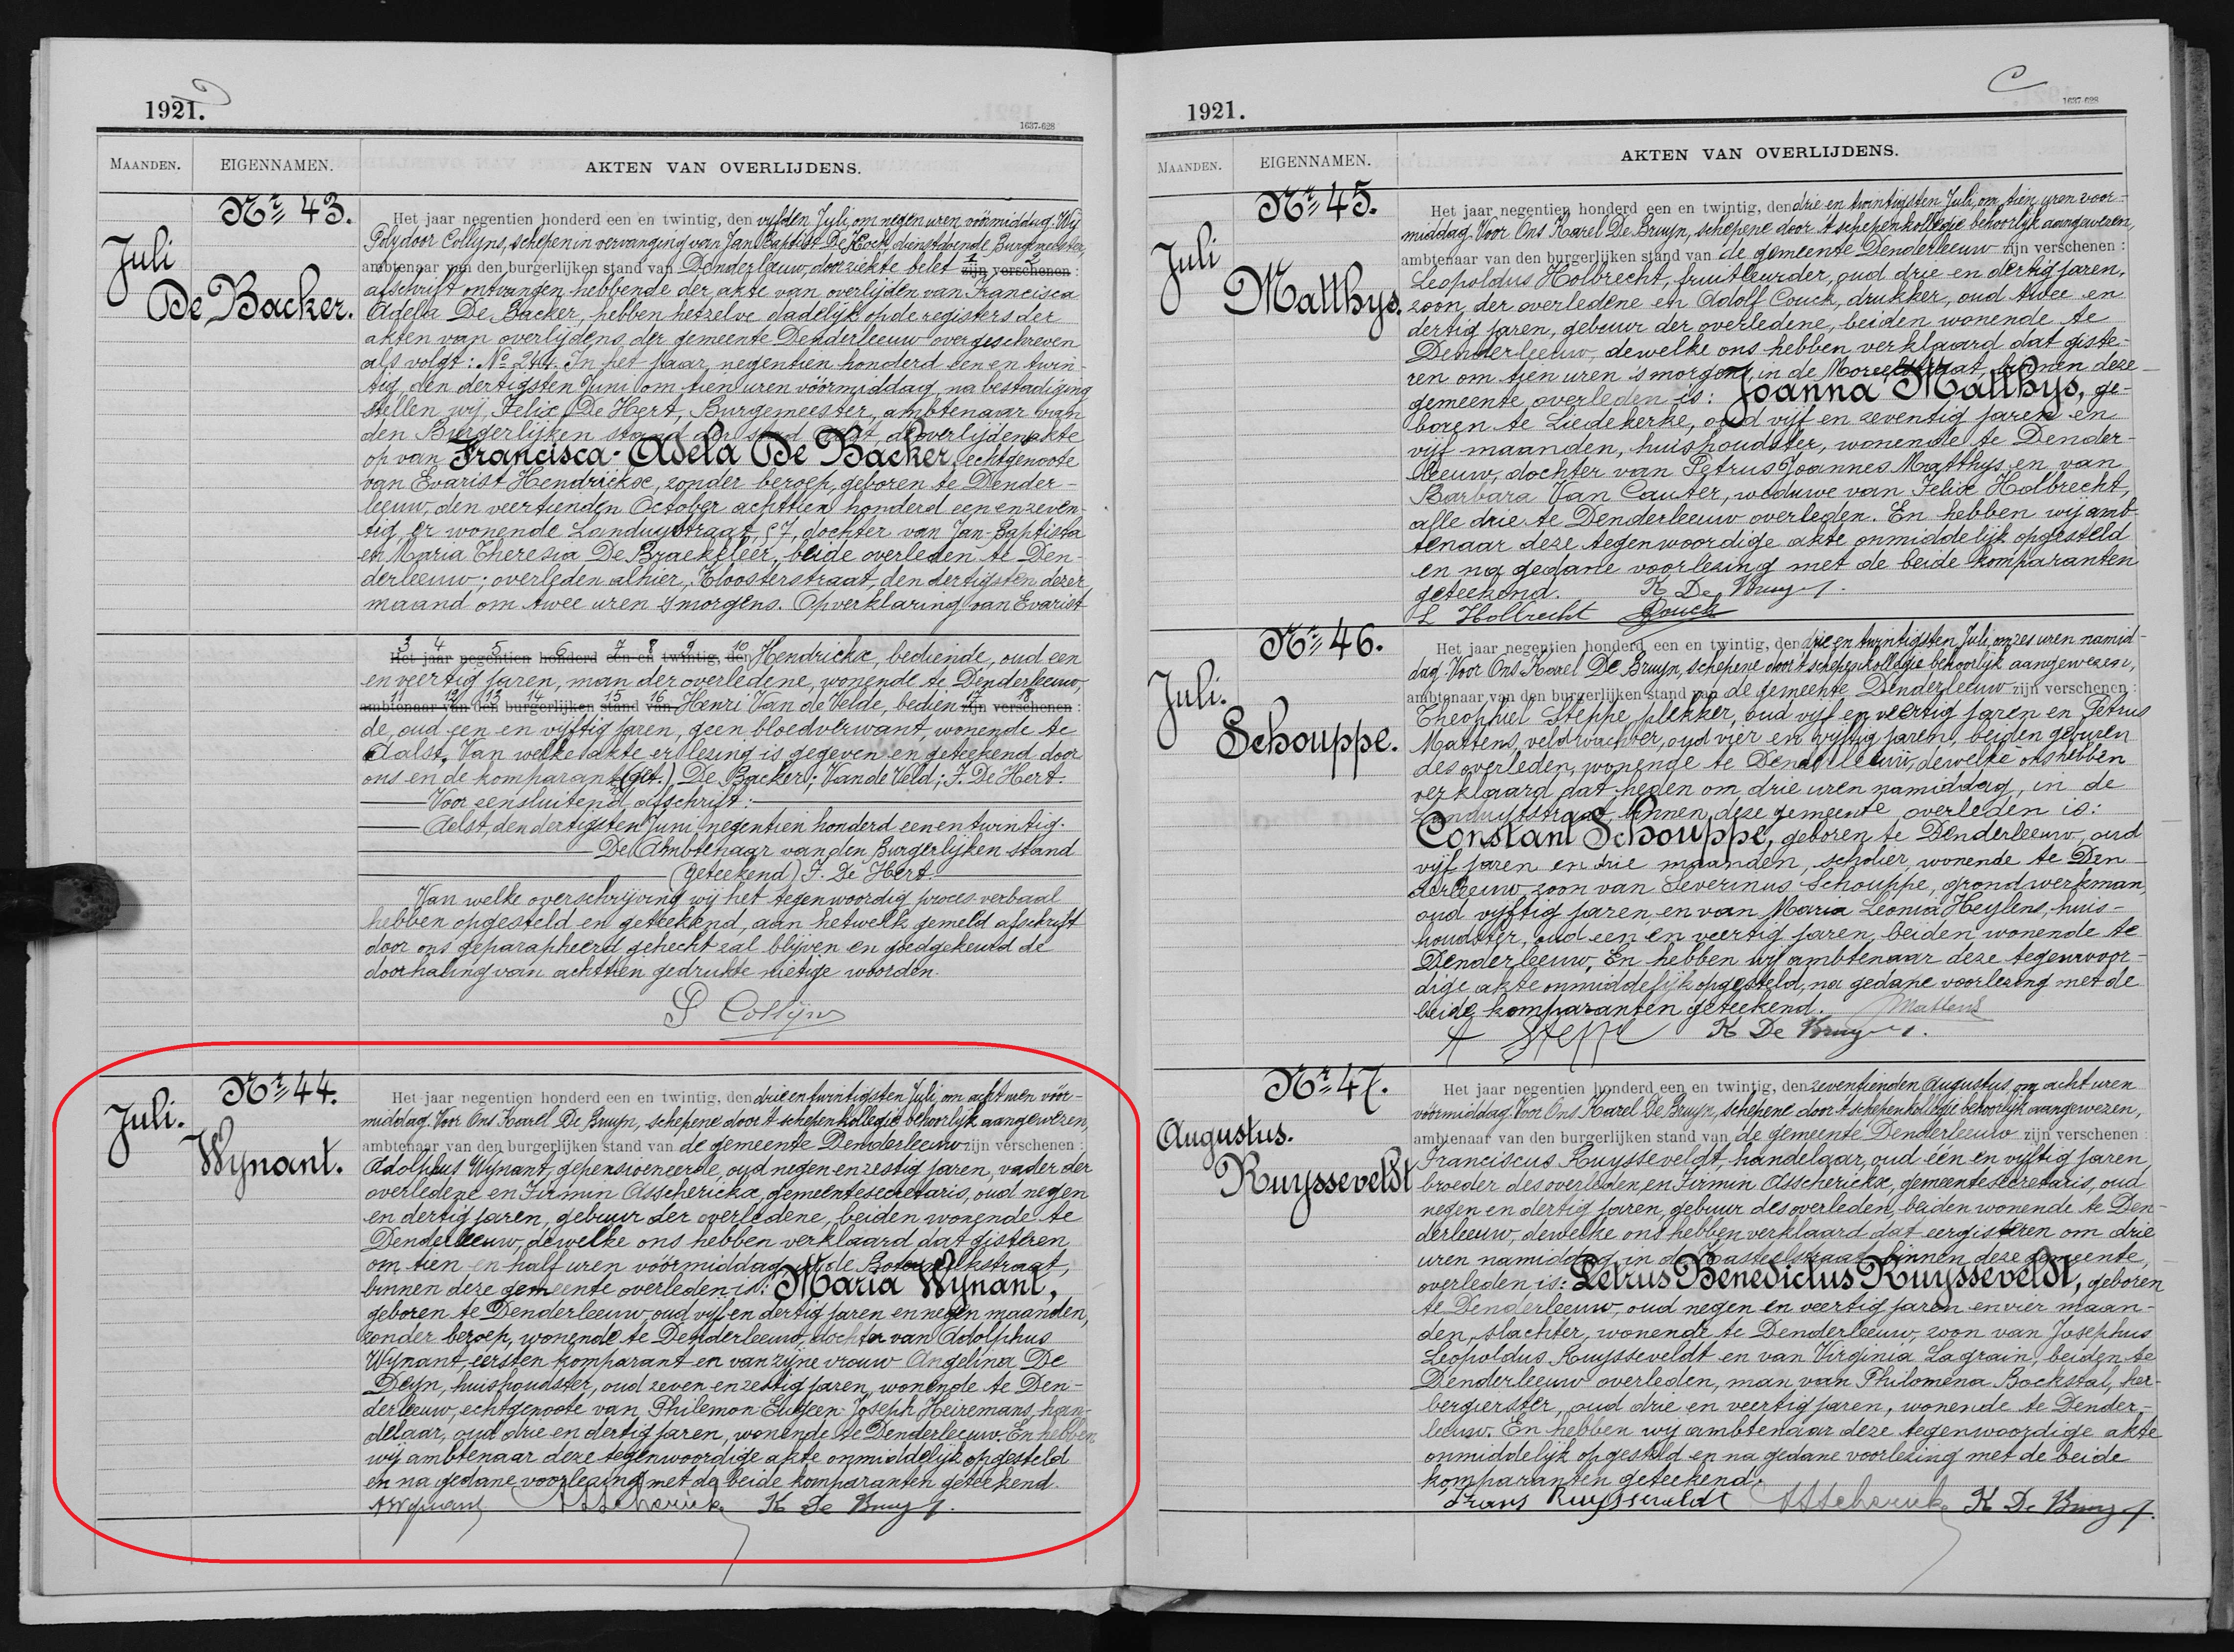 1921.
1637-628
MAANDEN.
EIGENNAMEN.
AKTEN VAN OVERLIJDENS.
Nr 43.
Juli
De Backer.
Het jaar negentien honderd een en twintig, den vijfden Juli, om negen uren vóórmiddag. Wij
Polydoor Collijns, schepen in vervanging van Jan Baptist De Cock, dienstdoende Burgemeester,
ambtenaar van den burgerlijken stand van Denderleeuw, door ziekte belet 1 zijn 2 verschenen :
afschrift ontvangen hebbende der akte van overlijden van Francisca
Adela De Backer, hebben hetzelve dadelijk op de registers der
akten van overlijdens der gemeente Denderleeuw overgeschreven
als volgt : No 244. In het jaar negentien honderd een en twin-
tig, den dertigsten Juni om tien uren vóórmiddag, na bestadiging
stellen wij, Felix De Hert, Burgemeester, ambtenaar van
den Burgerlijken stand der stad Aelst, de overlijdensakte
op van Francisca-Adela De Backer, echtgenoote
van Evarist Hendrickx, zonder beroep, geboren te Dender-
leeuw, den veertienden October achttien honderd een en zeven-
tig, er wonende Landuytstraat, 57, dochter van Jan-Baptista
en Maria Theresia De Braekeleer, beide overleden te Den-
derleeuw ; overleden alhier, Kloosterstraat, den dertigsten dezer
maand om twee uren 's morgens. Op verklaring van Evarist
3 4 5 6 7 8 9 10
Het jaar negentien honderd een en twintig, den Hendrickx, bediende, oud een
en veertig jaren, man der overledene, wonende te Denderleeuw,
11 12 13 14 15 16 17 18
ambtenaar van den burgerlijken stand van Henri Van de Velde, bedien zijn verschenen :
de, oud een en vijftig jaren, geen bloedverwant, wonende te
Aalst. Van welke akte er lezing is gegeven en geteekend door
ons en de komparant (get.) De Backer ; Van de Veld ; F. De Hert.
Voor eensluitend afschrift :
Aelst, den dertigsten Juni negentien honderd een en twintig.
De Ambtenaar van den Burgerlijken stand
(geteekend) F. De Hert.
Van welke overschrijving wij het tegenwoordig proces-verbaal
hebben opgesteld en geteekend, aan hetwelk gemeld afschrift
door ons geparapheerd gehecht zal blijven en goedgekeurd de
doorhaling van achttien gedrukte nietige woorden.
P Collijns
Nr 44.
Juli.
Wijnant.
Het jaar negentien honderd een en twintig, den drie en twintigsten Juli, om acht uren vóór-
middag. Voor Ons Karel De Bruyn, schepene door 't schepenkollegie behoorlijk aangewezen,
ambtenaar van den burgerlijken stand van de gemeente Denderleeuw zijn verschenen :
Adolphus Wijnant, gepensioneerde, oud negen en zestig jaren, vader der
overledene en Firmin Asscherickx, gemeentesecretaris, oud negen
en dertig jaren, gebuur der overledene, beiden wonende te
Denderleeuw, dewelke ons hebben verklaard dat gisteren
om tien en half uren vóórmiddag in de straat,
binnen deze gemeente overleden is : Maria Wijnant,
geboren te Denderleeuw, oud vijf en dertig jaren en negen maanden,
zonder beroep, wonende te Denderleeuw, dochter van Adolphus
Wijnant, eersten komparant en van zijne vrouw Angelina De
Deyn, huishoudster, oud zeven en zestig jaren, wonende te Den-
derleeuw, echtgenoote van Philemon-Eugeen-Joseph Heiremans, han-
delaar, oud drie en dertig jaren, wonende te Denderleeuw. En hebben
wij ambtenaar deze tegenwoordige akte onmiddelijk opgesteld
en na gedane voorlezing met de beide komparanten geteekend.
A Wijnant Asscherickx K De Bruyn.
1921.
1637-628
MAANDEN.
EIGENNAMEN.
AKTEN VAN OVERLIJDENS.
Nr 45.
Juli
Matthys.
Het jaar negentien honderd een en twintig, den drie en twintigsten Juli, om tien uren voor-
middag. Voor Ons Karel De Bruyn, schepene door 't schepenkollegie behoorlijk aangewezen,
ambtenaar van den burgerlijken stand van de gemeente Denderleeuw zijn verschenen :
Leopoldus Holbrecht, fruitleurder, oud drie en dertig jaren,
zoon der overledene en Adolf Couck, drukker, oud twee en
dertig jaren, gebuur der overledene, beiden wonende te
Denderleeuw, dewelke ons hebben verklaard dat giste-
ren om tien uren 's morgens, in de straat, binnen deze
gemeente overleden is : Joanna Matthys, ge-
boren te Liedekerke, oud vijf en zeventig jaren en
vijf maanden, huishoudster, wonende te Dender-
leeuw, dochter van Petrus Joannes Matthys en van
Barbara Van Cauter, weduwe van Felix Holbrecht,
alle drie te Denderleeuw overleden. En hebben wij amb-
tenaar deze tegenwoordige akte onmiddelijk opgesteld
en na gedane voorlezing met de beide komparanten
geteekend. K De Bruyn.
L Holbrecht Couck
Nr 46.
Juli.
Schouppe.
Het jaar negentien honderd een en twintig, den drie en twintigsten Juli, om zes uren namid-
dag. Voor Ons Karel De Bruyn, schepene door 't schepenkollegie behoorlijk aangewezen,
ambtenaar van den burgerlijken stand van de gemeente Denderleeuw zijn verschenen :
Theophiel Steppe, plekker, oud vijf en veertig jaren en Petrus
Mattens, veldwachter, oud vier en vijftig jaren, beiden geburen
des overleden, wonende te Denderleeuw, dewelke ons hebben
verklaard dat heden om drie uren namiddag, in de
Landuytstraat, binnen deze gemeente overleden is :
Constant Schouppe, geboren te Denderleeuw, oud
vijf jaren en drie maanden, scholier, wonende te Den-
derleeuw, zoon van Severinus Schouppe, grondwerkman,
oud vijftig jaren en van Maria Leonia Heylens, huis-
houdster, oud een en veertig jaren, beiden wonende te
Denderleeuw. En hebben wij ambtenaar deze tegenwoor-
dige akte onmiddelijk opgesteld, na gedane voorlezing met de
beide komparanten geteekend. Mattens
K De Bruyn.
Nr 47.
Augustus.
Ruysseveldt
Het jaar negentien honderd een en twintig, den zeventienden Augustus om acht uren
vóórmiddag. Voor Ons Karel De Bruyn, schepene door 't schepenkollegie behoorlijk aangewezen,
ambtenaar van den burgerlijken stand van de gemeente Denderleeuw zijn verschenen :
Franciscus Ruysseveldt, handelaar, oud één en vijftig jaren,
broeder des overleden, en Firmin Asscherickx, gemeentesecretaris, oud
negen en dertig jaren, gebuur des overleden, beiden wonende te Den-
derleeuw, dewelke ons hebben verklaard dat eergisteren om drie
uren namiddag in de Kasteelstraat, binnen deze gemeente,
overleden is : Petrus Benedictus Ruysseveldt, geboren
te Denderleeuw, oud negen en veertig jaren en vier maan-
den, slachter, wonende te Denderleeuw, zoon van Josephus
Leopoldus Ruysseveldt en van Virginia Lagrain, beiden te
Denderleeuw overleden, man van Philomena Bockstal, her-
bergierster, oud drie en veertig jaren, wonende te Dender-
leeuw. En hebben wij ambtenaar deze tegenwoordige akte
onmiddelijk opgesteld en na gedane voorlezing met de beide
komparanten geteekend.
Frans Ruysseveldt Asscherickx K De Bruyn.